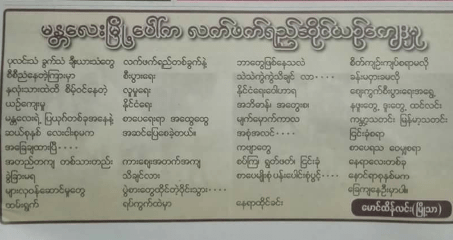 မန္တလေးမြို့ပေါ်က လက်ဖက်ရည်ဆိုင်ယဉ်ကျေးမှု
ပုလင်းသံ ခွက်သံ ချီယားသံတွေ
စီစီညံနေတဲ့ကြားမှာ
နှလုံးသားထဲထိ စိမ့်ဝင်နေတဲ့
ယဉ်ကျေးမှု
မန္တလေးရဲ့ ပြယုဂ်တစ်ခုအနေနဲ့
ဆယ်စုနှစ် လေးငါးစုမက
အခြေချထားပြီ
အတည်တကျ တစ်သားတည်း
ခွဲခြားမရ
များလှဝန်ဆောင်မှုတွေ
ထမ်းရွက်
လက်ဖက်ရည်တစ်ခွက်နဲ့
စီးပွားရေး
လူမှုရေး
နိုင်ငံရေး
စာပေရေးရာ အထွေထွေ
အဆင်ပြေစေခဲ့တယ်။
ကားဈေးအတက်အကျ
သိချင်လား
ပွဲစားတွေထိုင်တဲ့ဝိုင်းသွား
ရပ်ကွက်ထဲမှာ
ဘာတွေဖြစ်နေသလဲ
သဲသဲကွဲကွဲသိချင် လာ
နိုင်ငံရေးဝေါဟာရ
အဘိဓာန် အတွေးစ။
မျက်မှောက်ကာလ
အစုံအလင်
ကဗျာတွေ
စပ်ကြ ရွတ်ဖတ်၊ ငြင်းခုံ
နေရာထိုင်ခင်း
စိတ်ကျဉ်းကျပ်စရာမလို
ခန်းမဟာခမလို
ဈေးကွက်စီးပွားရေးအရွေ့
ကမ္ဘာသတင်း မြန်မာသတင်း
ငြင်းခုံစရာ
စာပေရသ ဝေမျှစရာ
နေရာလေးတစ်ခု
နှောင်ရာစုနှစ်မက
ခြေကျနေဦးမှာပါ။
မောင်ထိန်လင်း(မြို့သာ)